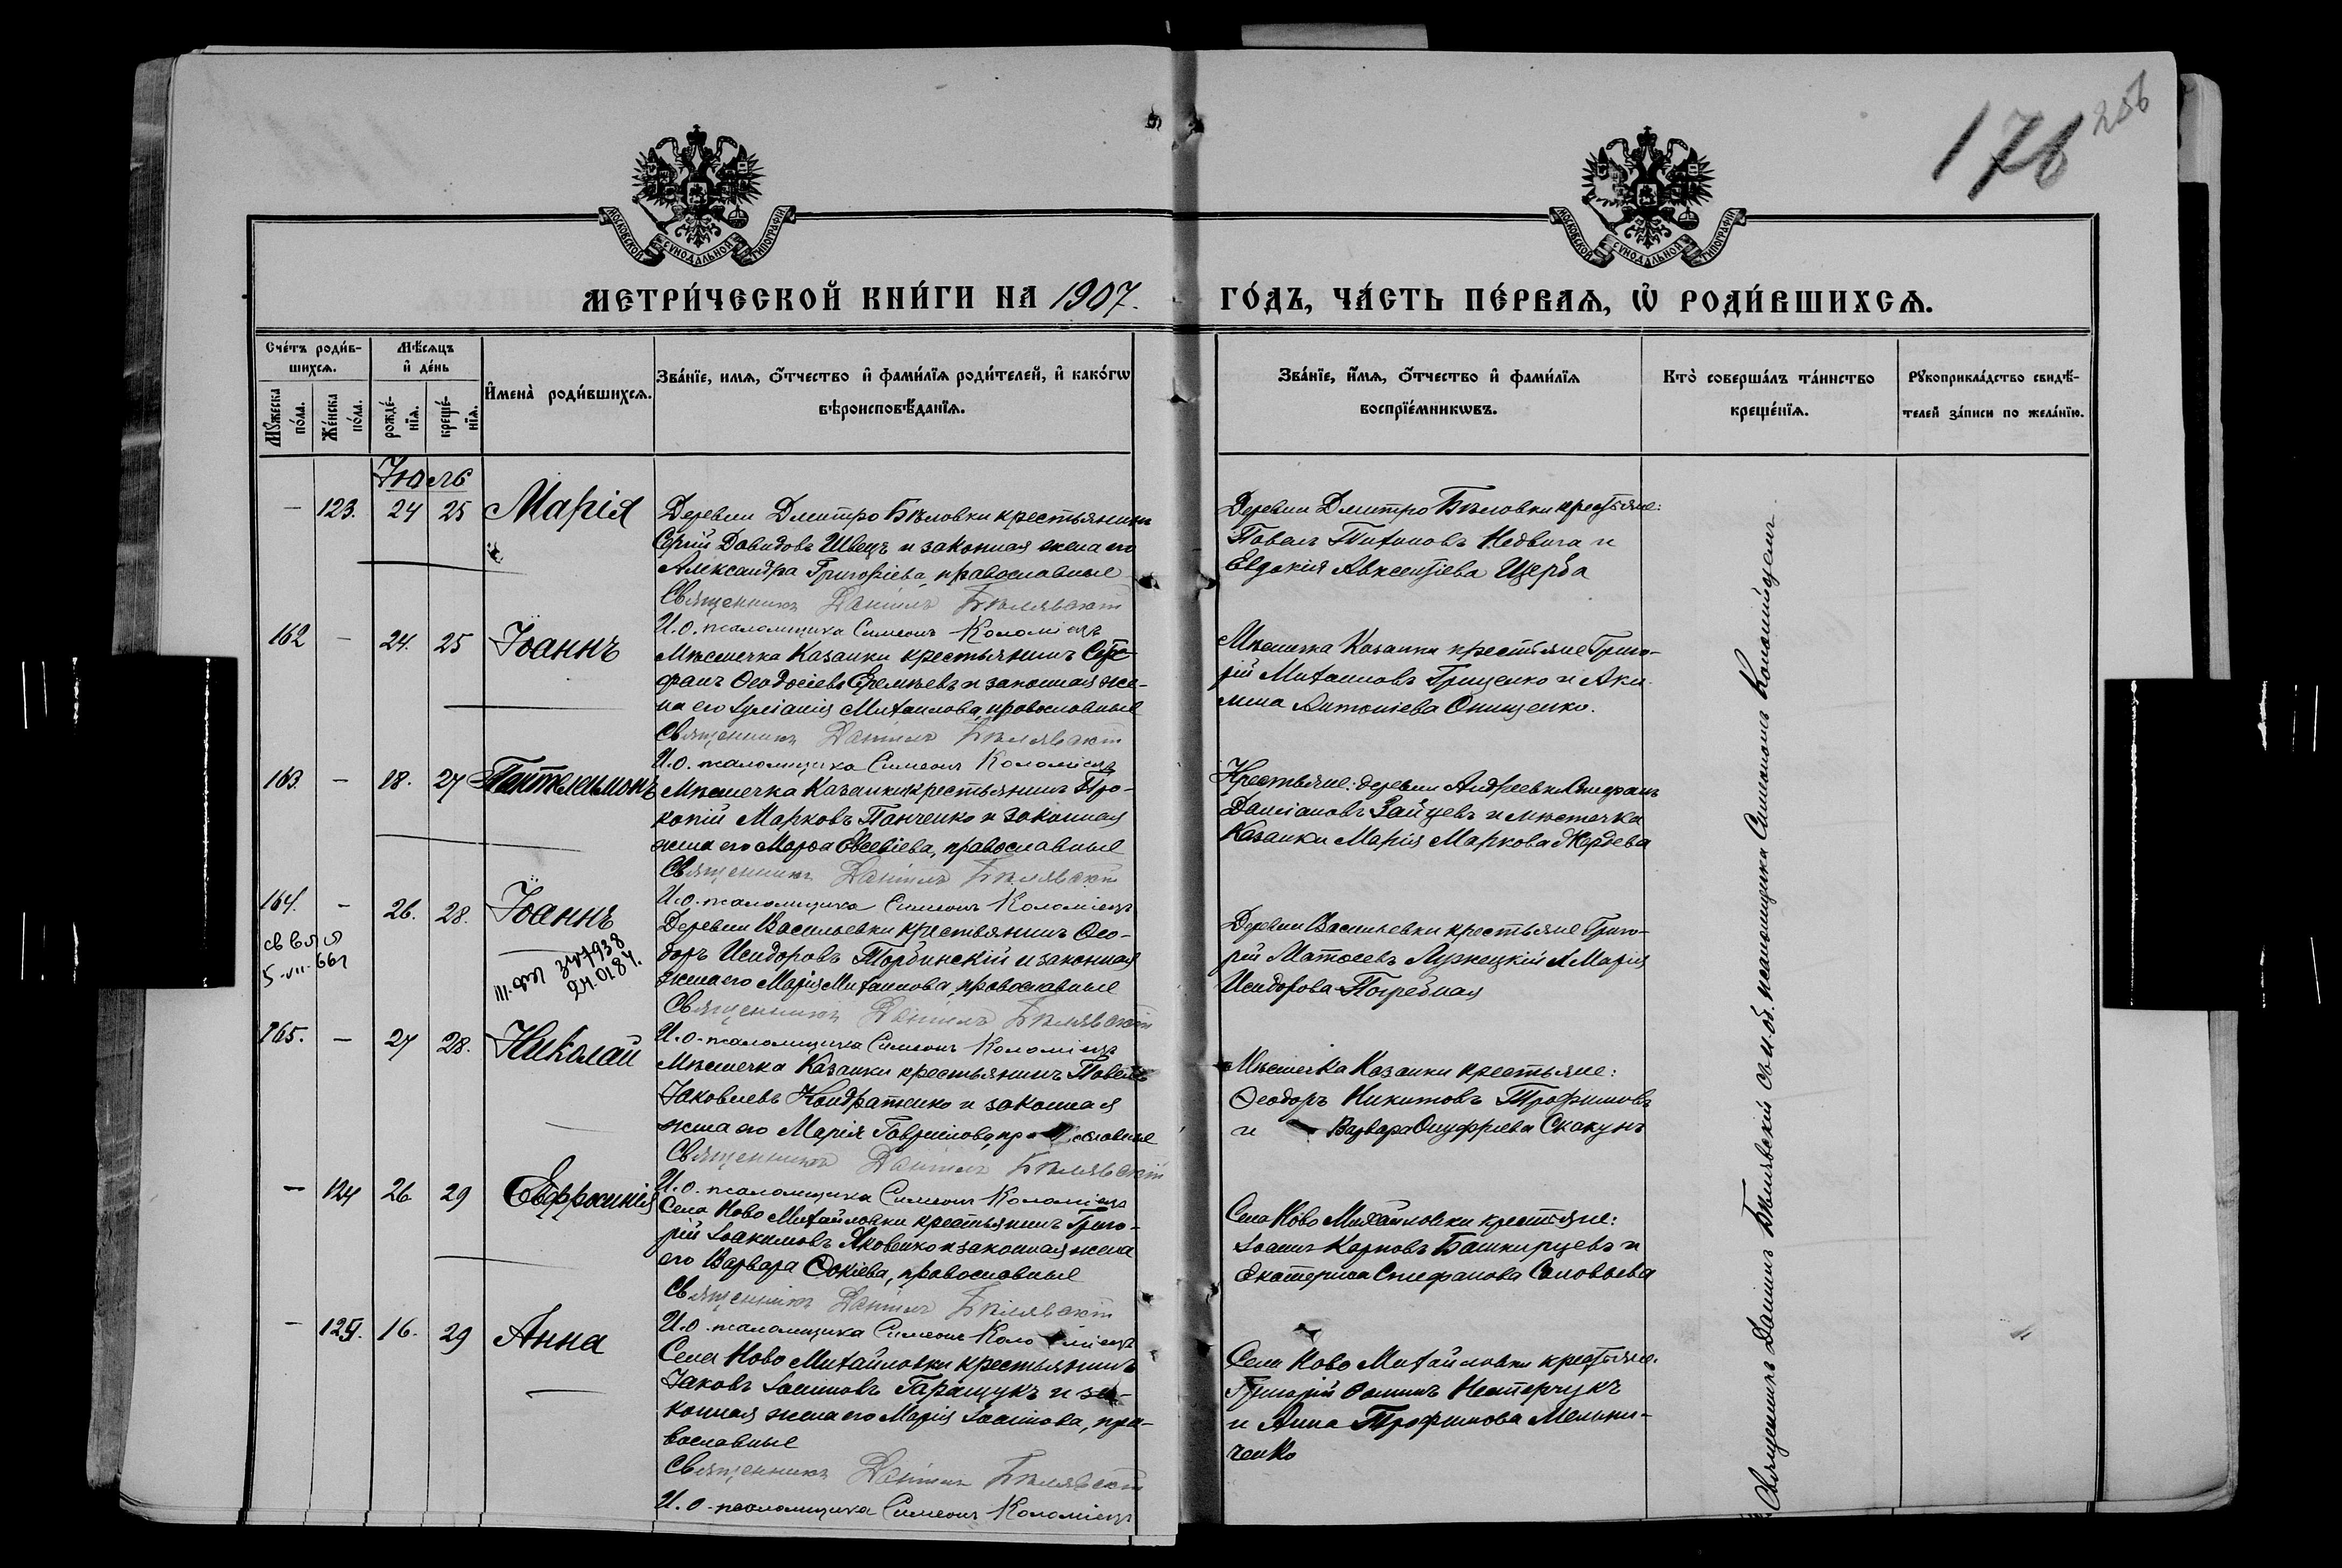 176
256
МОСКОВСКОЙ СУНОДАЛЬНОЙ ТИПОГРАФІИ
МОСКОВСКОЙ СУНОДАЛЬНОЙ ТИПОГРАФІИ
МЕТРИ́ЧЕСКОЙ КНИ́ГИ НА 1907.
ГО́ДЪ, ЧА́СТЬ ПЕ́РВАѦ, Ѡ҆ РОДИ́ВШИХСѦ.
Сче́тъ роди́в-
шихсѧ.
Мꙋжеска по́ла.
Же́нска по́ла.
Мѣ́сѧцъ и҆ де́нь
рожде́-
нїѧ.
креще́-
нїѧ.
И҆мена̀ роди́вшихсѧ.
Зва́нїе, имѧ, ѻ҆́тчество и҆ фами́лїѧ роди́телей, и҆ како́гѡ
вѣроисповѣ́данїѧ.
Зва́нїе, и҆́мѧ, ѻ҆́тчество и҆ фами́лїѧ
воспрїе́мникѡвъ.
Кто̀ соверша́лъ та́инство
креще́нїѧ.
Рꙋкоприкла́дство свидѣ́-
телей за́писи по жела́нїю.
Іюль
— 123. 24 25 Марія
Деревни Дмитро Бѣловки крестьянинъ
Сергій Давидовъ Швецъ и законная жена его
Александра Григоріева, православные
Священникъ Даніилъ Бѣлявскій
И. о. псаломщика Симеонъ Коломіецъ
Деревни Дмитро Бѣловки крестьяне:
Павелъ Титовъ Недвига и
Евдокія Авксентіева Щерба
162 — 24. 25 Іоаннъ
Мѣстечка Казанки крестьянинъ Сте-
фанъ Ѳеодосіевъ Еремѣевъ и законная же-
на его Іуліанія Михаилова, православные
Священникъ Даніилъ Бѣлявскій
И. о. псаломщика Симеонъ Коломіецъ
Мѣстечка Казанки крестьяне Григо-
рій Михаиловъ Гриценко и Аки-
лина Антоніева Онищенко.
163. — 18. 27 Пантелеимонъ
Мѣстечка Казанки крестьянинъ Про-
копій Марковъ Панченко и законная
жена его Марѳа Евсевіева, православные
Священникъ Даніилъ Бѣлявскій
И. о. псаломщика Симеонъ Коломіецъ
Крестьяне: деревни Андреевки Стефанъ
Даміановъ Зайцевъ и мѣстечка
Казанки Марія Маркова Жердева
164. — 26. 28. Іоаннъ
5-VII-66г
Деревни Васильевки крестьянинъ Ѳео-
доръ Исидоровъ Торбинскій и законная
жена его Марія Михаилова, православные
Священникъ Даніилъ Бѣлявскій
И. о. псаломщика Симеонъ Коломіецъ
Деревни Васильевки крестьяне Григо-
рій Матѳеевъ Лузнецкій и Марія
Исидорова Погребная
165. — 27 28. Николай
Мѣстечка Казанки крестьянинъ Павелъ
Іаковлевъ Кондратенко и законная
жена его Марія Гавриилова, православные
Священникъ Даніилъ Бѣлявскій
И. о. псаломщика Симеонъ Коломіецъ
Мѣстечка Казанки крестьяне:
Ѳеодоръ Никитовъ Трофимовъ
и Варвара Онуфріева Скакунъ
— 124 26 29 Евфросинія
Села Ново Михайловки крестьянинъ Григо-
рій Іоакимовъ Яковенко и законная жена
его Варвара Ѳокіева, православные
Священникъ Даніилъ Бѣлявскій
И. о. псаломщика Симеонъ Коломіецъ
Села Ново Михайловки крестьяне:
Іоаннъ Карповъ Башкирцевъ и
Екатерина Стефанова Соловьева
— 125. 16. 29 Анна
Села Ново Михайловки крестьянинъ
Іаковъ Іоанновъ Гаращукъ и за-
конная жена его Марія Іоаннова, пра-
вославные
Священникъ Даніилъ Бѣлявскій
И. о. псаломщика Симеонъ Коломіецъ
Села Ново Михайловки крестьяне.
Григорій Ѳоминъ Нестерчукъ
и Анна Трофимова Мельни-
ченко
Священникъ Даніилъ Бѣлявскій съ и. об. псаломщика Симеономъ Коломійцемъ